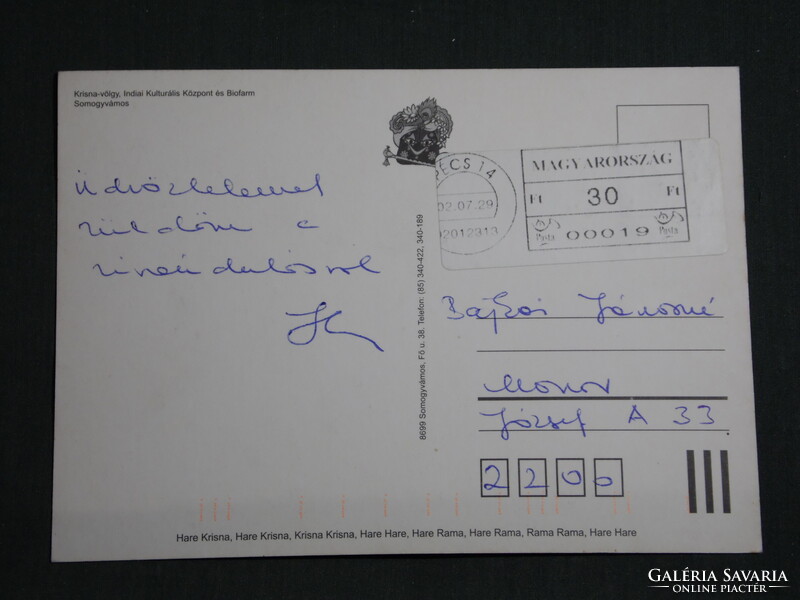 Krisna-völgy, Indiai Kulturális Központ és Biofarm
Somogyvámos
Üdvözletemet
küldöm a
kirándulásról
PÉCS 14
02.07.29
2012313
MAGYARORSZÁG
Ft 30 Ft
Posta 00019 Posta
8699 Somogyvámos, Fő u. 38. Telefon: (85) 340-422, 340-189
Bajkai Jánosné
Monor
József A 33
2200
Hare Krisna, Hare Krisna, Krisna Krisna, Hare Hare, Hare Rama, Hare Rama, Rama Rama, Hare Hare
GALÉRIA SAVARIA
ONLINE PIACTÉR